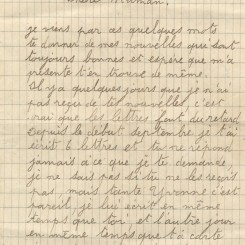 Chère Maman,
je viens par ces quelques mots
te donner de mes nouvelles qui sont
toujours bonnes et espère que m'a
présente t'en trouve de même.
Il y a quelques jours que je n'ai
pas reçu de tes nouvelles, c'est
vrai que les lettres font du retard
Depuis le début septembre je t'ai
écrit 6 lettres et tu ne répond
jamais à ce que je te demande,
je ne sais pas si tu ne les reçois
pas, mais tante Yvonne c'est
pareil, je lui écrit en même
temps que toi, et l'autre jour
en même temps que ta carte